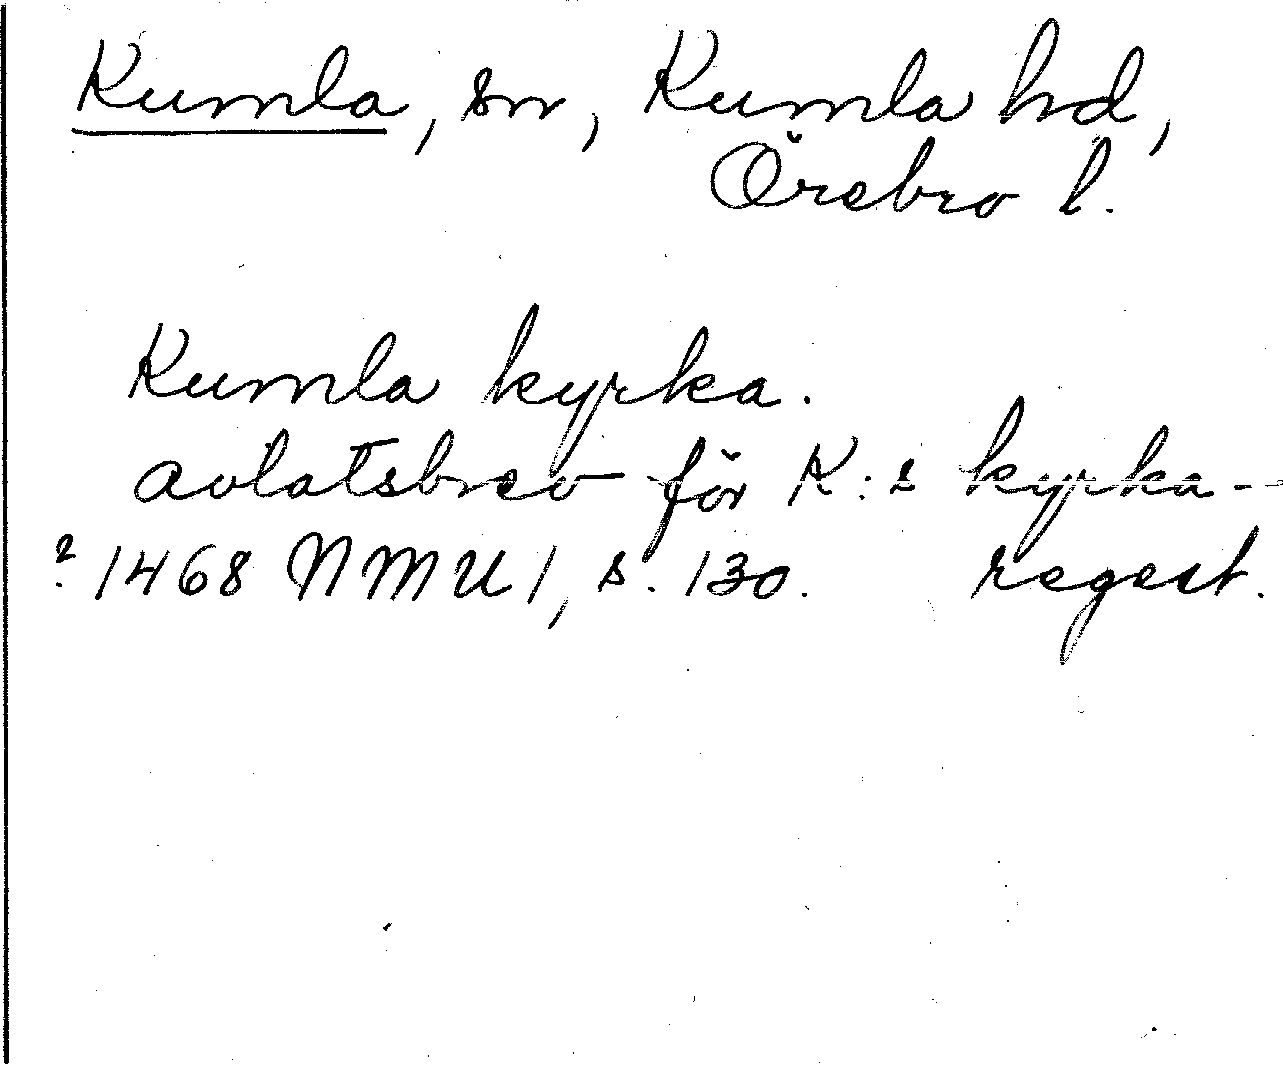 Kumla, sn, Kumla hd,
Örebro l.
Kumla kyrka.
avlatsbrev för K:s kyrka -
? 1468 NMU 1, s. 130. regest.